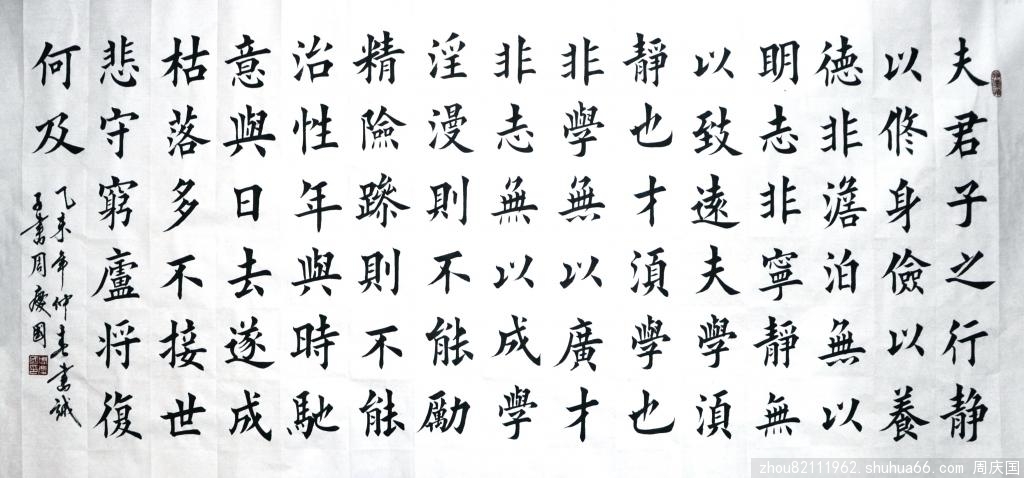 夫君子之行静
以修身儉以養
德非澹泊無以
明志非寧靜無
以致遠夫學須
靜也才須學也
非學無以廣才
非志無以成學
淫漫則不能勵
精險蹂則不能
治性年與時馳
意與日去遂成
枯落多不接世
悲守窮廬將復
何及
乙未年仲春書誡
子書周慶國
zhou82111962.shuhua66.com 周庆国